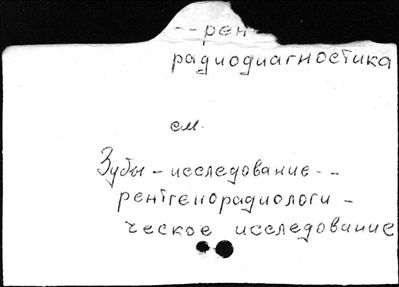 --рен
радиодиагностика
см.
Зубы - исследование --
рентгенорадиологи -
ческое исследование